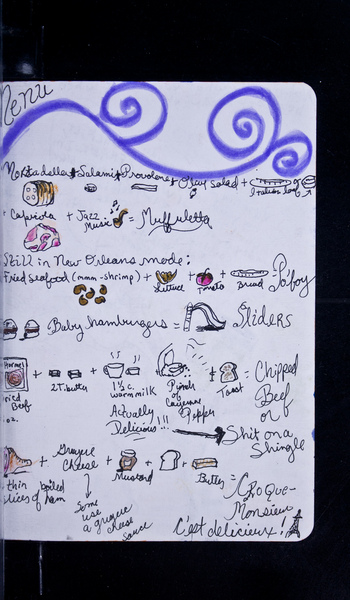 Menu
Mortadella + Salami + Provolone + Olive Salad + Italian
+ Capicola + Jazz Music = Muffuletta
Still in New Orleans mode:
Fried seafood (mmm-shrimp) + Lettuce + Tomato + Bread = Po'boy
Baby hamburgers = Sliders
Hormel
Dried Beef
oz.
+ 2T. butter + 1½ c. warm milk + Pinch of Cayenne Pepper + Toast = Chipped Beef or
Actually Delicious!!!
Shit on a Shingle
thin slices of boiled ham + Gruyere Cheese + Mustard + + Butter = Croque-Monsieur
Some use a gruyere cheese sauce
C'est delicieux!